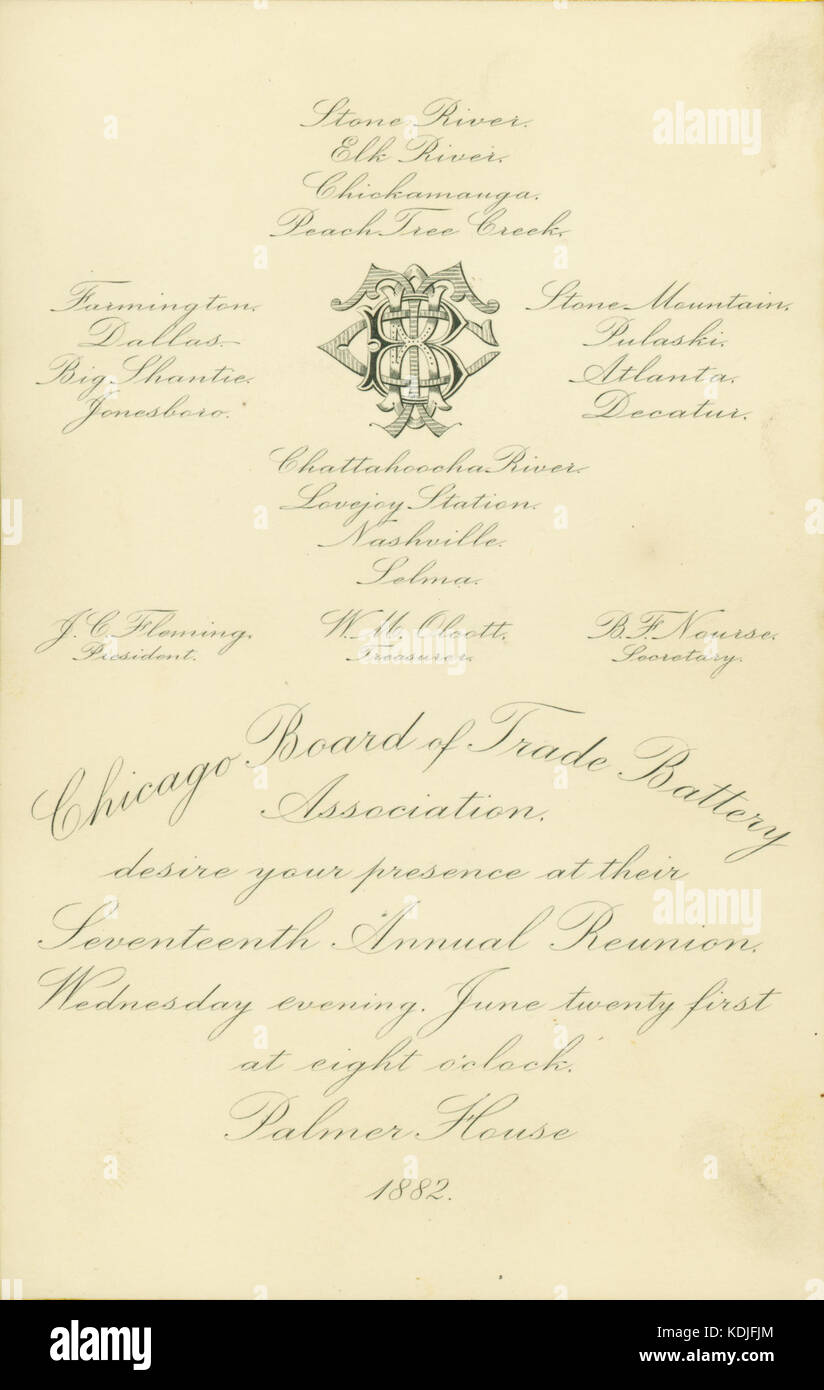 Stone River.
Elk River.
Chickamauga.
Peach Tree Creek.
Farmington.
Dallas.
Big Shantie.
Jonesboro.
Stone Mountain.
Pulaski.
Atlanta.
Decatur.
Chattahoocha River.
Lovejoy Station.
Nashville.
Selma.
J. C. Fleming.
President.
W. M. Olcott.
Treasurer.
B. F. Nourse.
Secretary.
Chicago Board of Trade Battery
Association.
desire your presence at their
Seventeenth Annual Reunion.
Wednesday evening. June twenty first
at eight o'clock.
Palmer House
1882.
alamy
alamy
alamy
alamy
a alamy stock photo
KDJFJM
www.alamy.com